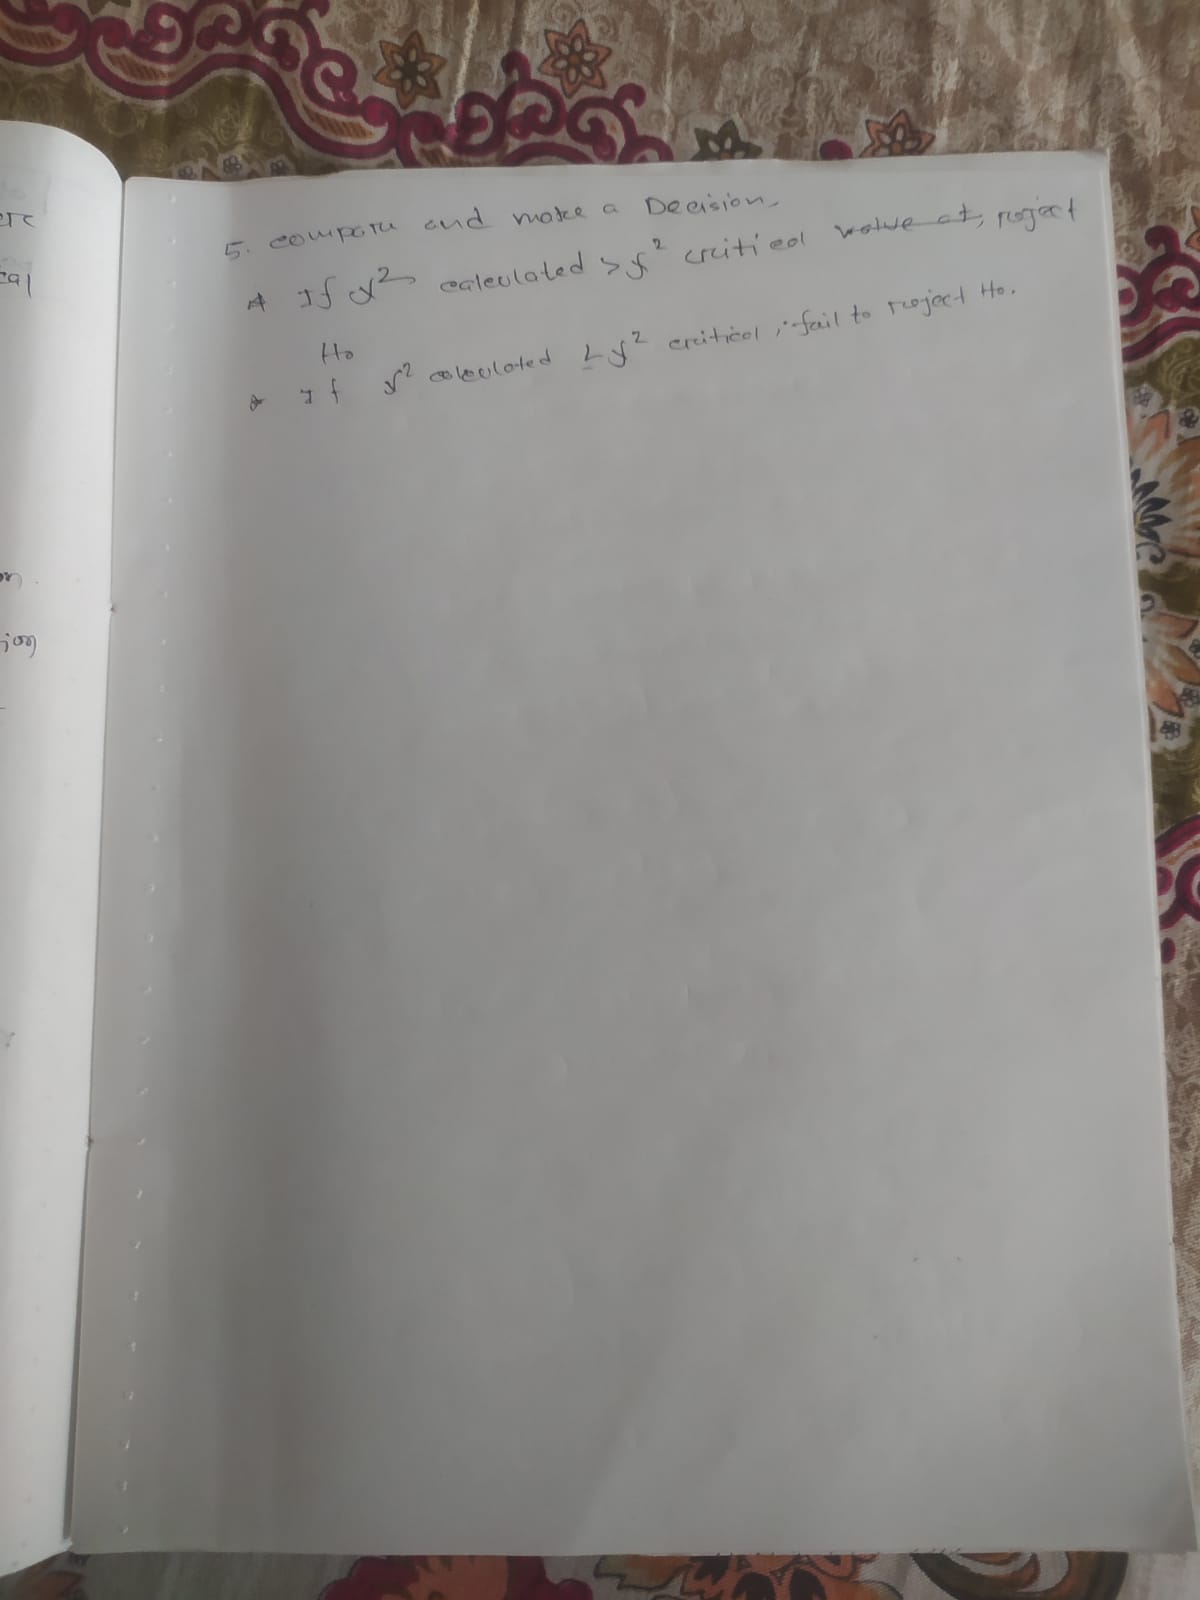 5. compare and make a Decision.
* If χ² calculated > χ² critical value at, reject
H₀
* If χ² calculated ≤ χ² critical, fail to reject H₀.
ion